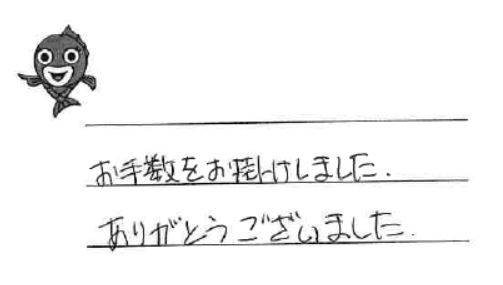 お手数をお掛けしました.
ありがとうございました.